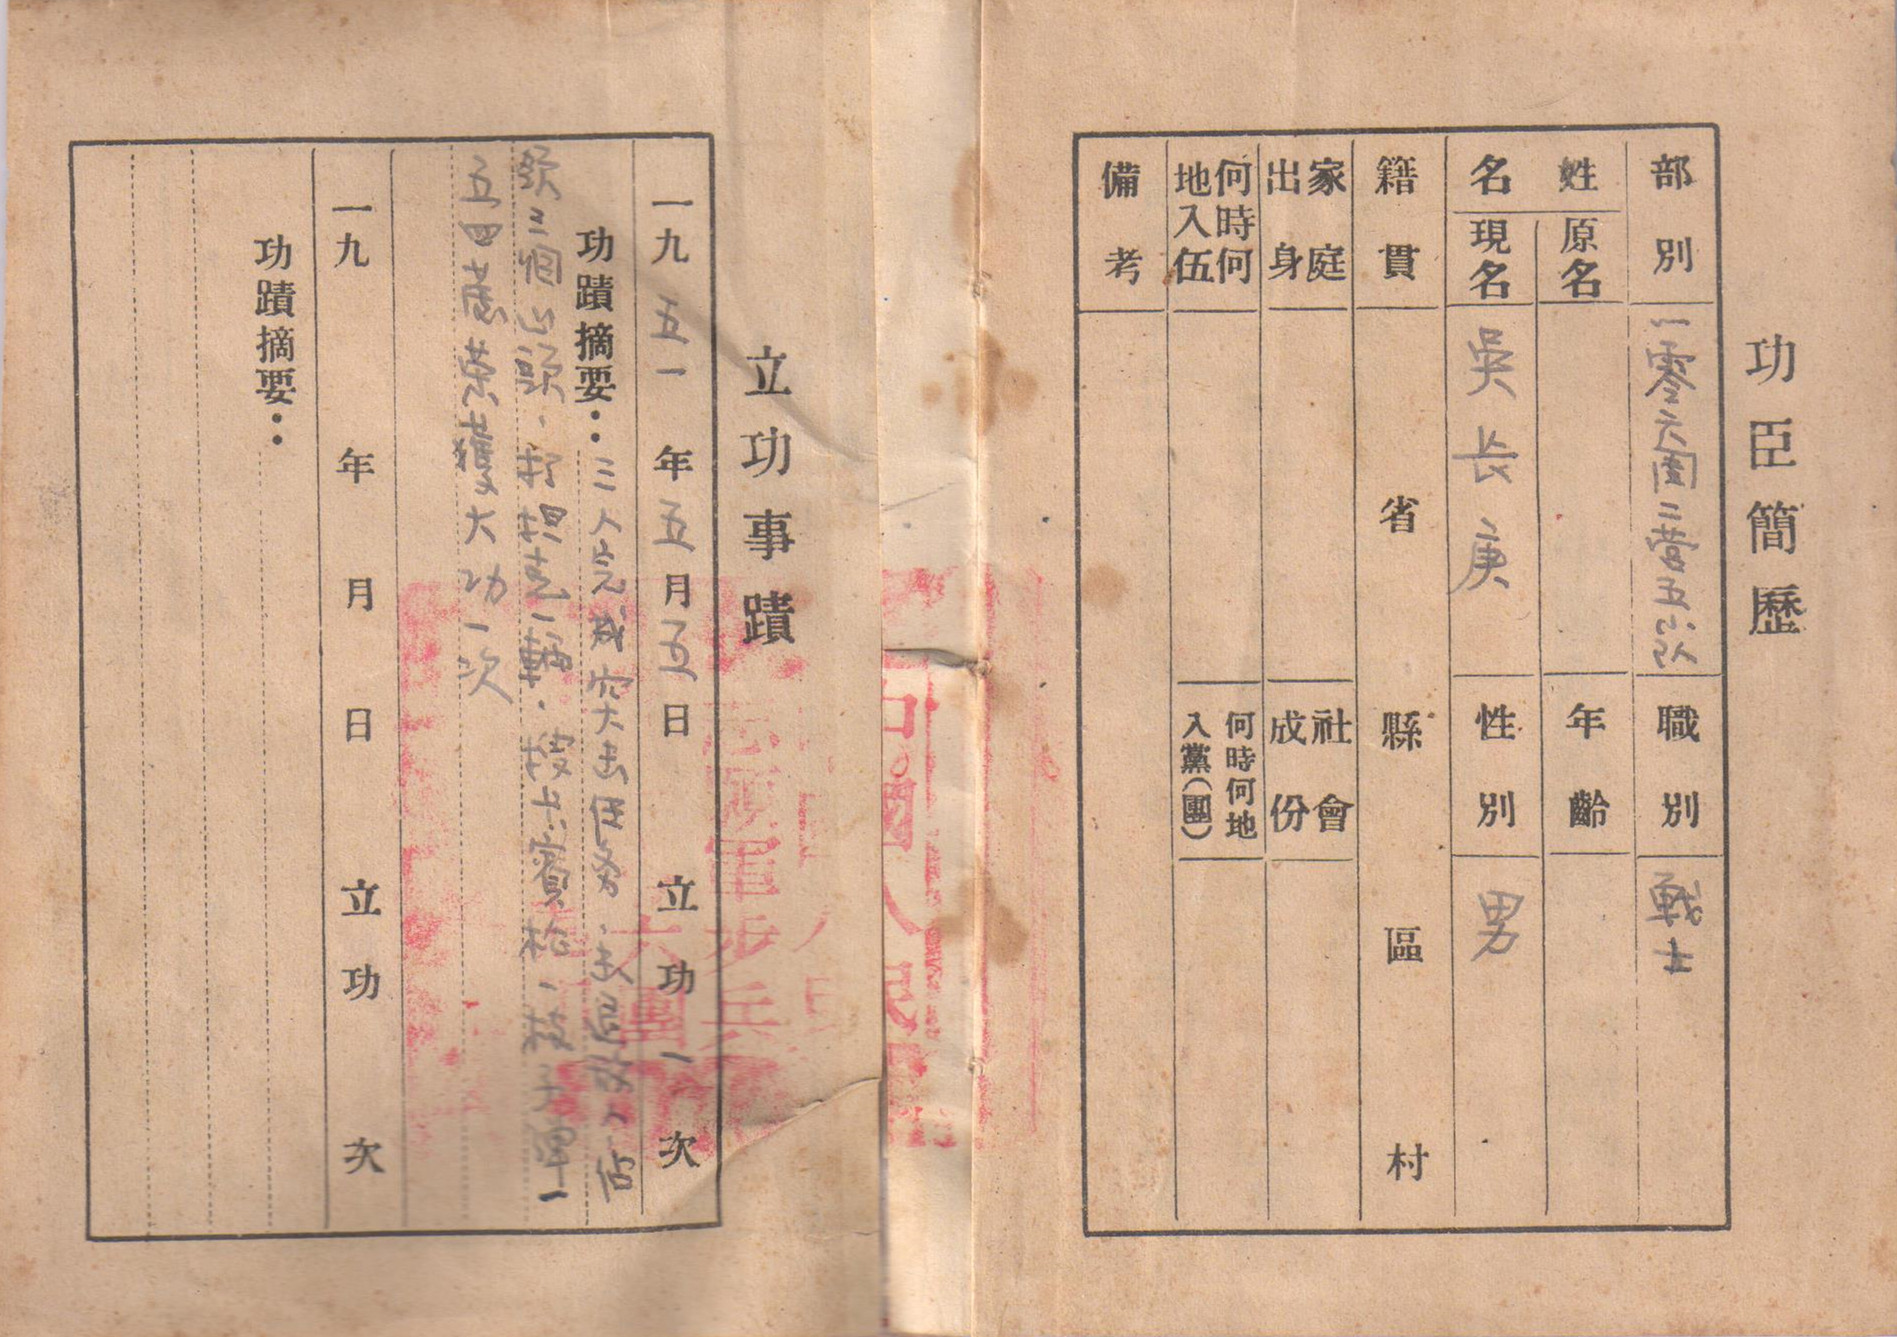 功臣簡歷
部別 一零六團二營五小隊 職別 戰士
姓名 原名 年齡
現名 吳長庚 性別 男
籍貫 省 縣 區 村
家庭出身 社會成份
何時何地入伍 何時何地入黨(團)
備考
立功事蹟
一九五一年五月五日 立功一次
功蹟摘要：三人完成突击任务.击 敌人佔
领三個山頭.打坦克一輛.
五四 荣獲大功一次
一九 年 月 日 立功 次
功蹟摘要：
中國人民
志願軍步兵
六團